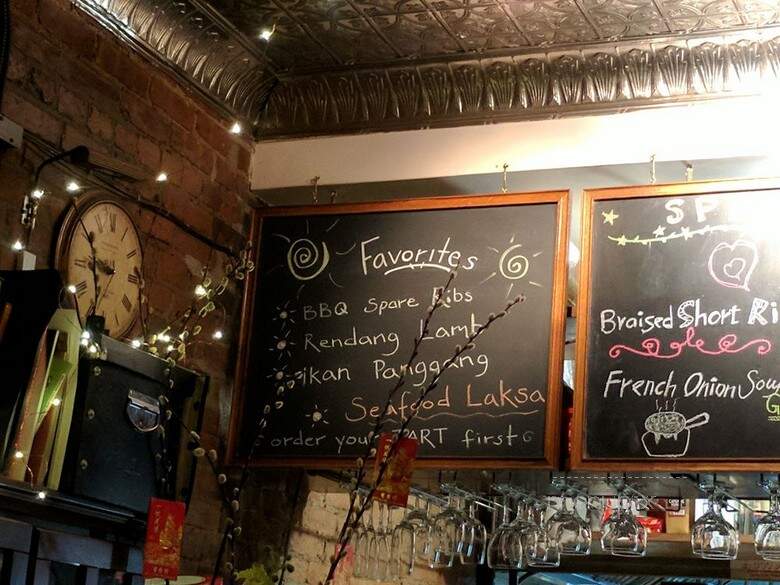 Favorites
BBQ Spare Ribs
Rendang Lamb
ikan Panggang
Seafood Laksa
order first
SP
Braised Short Ri
French Onion Soup
G